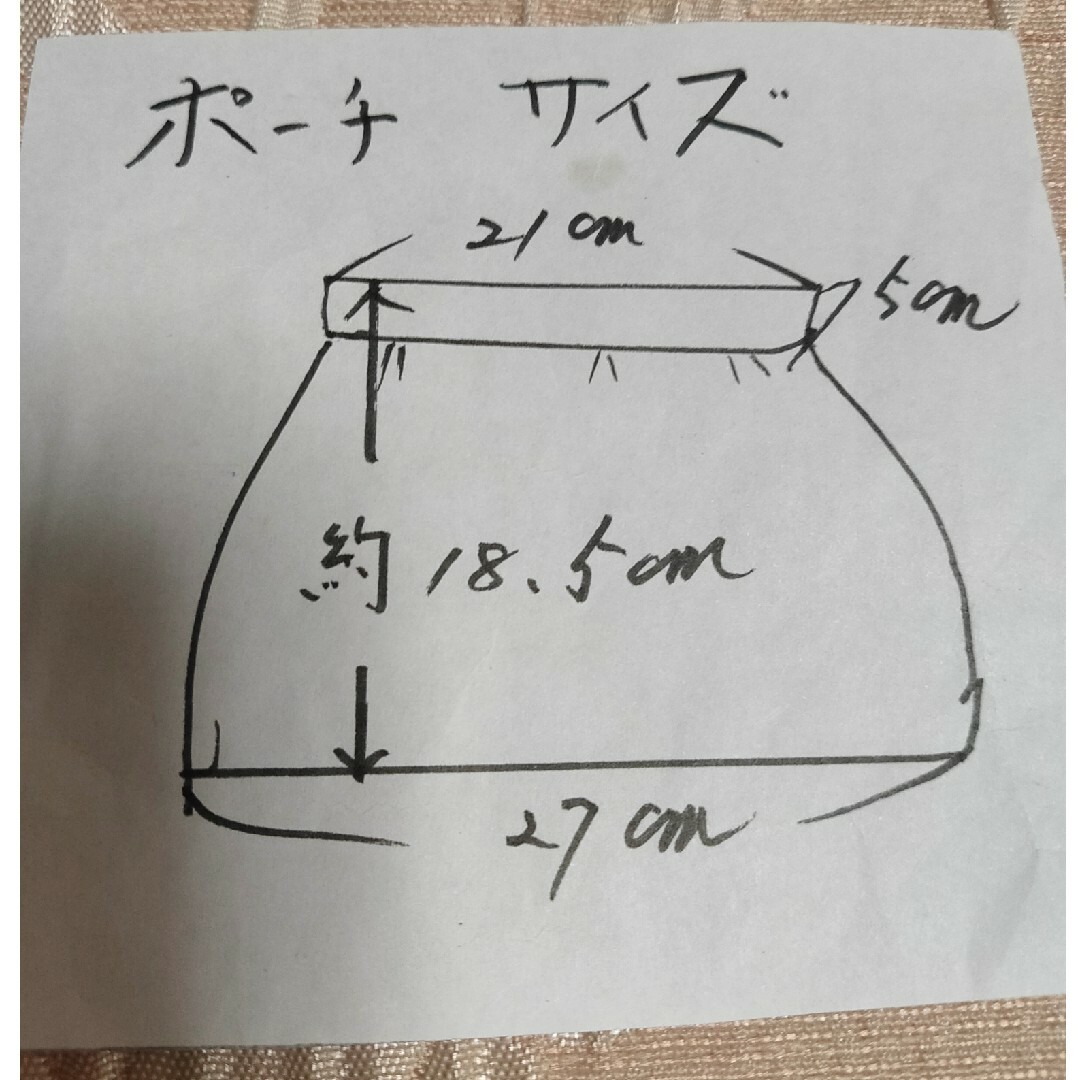 ポーチ サイズ
21cm
5cm
約18.5cm
27cm